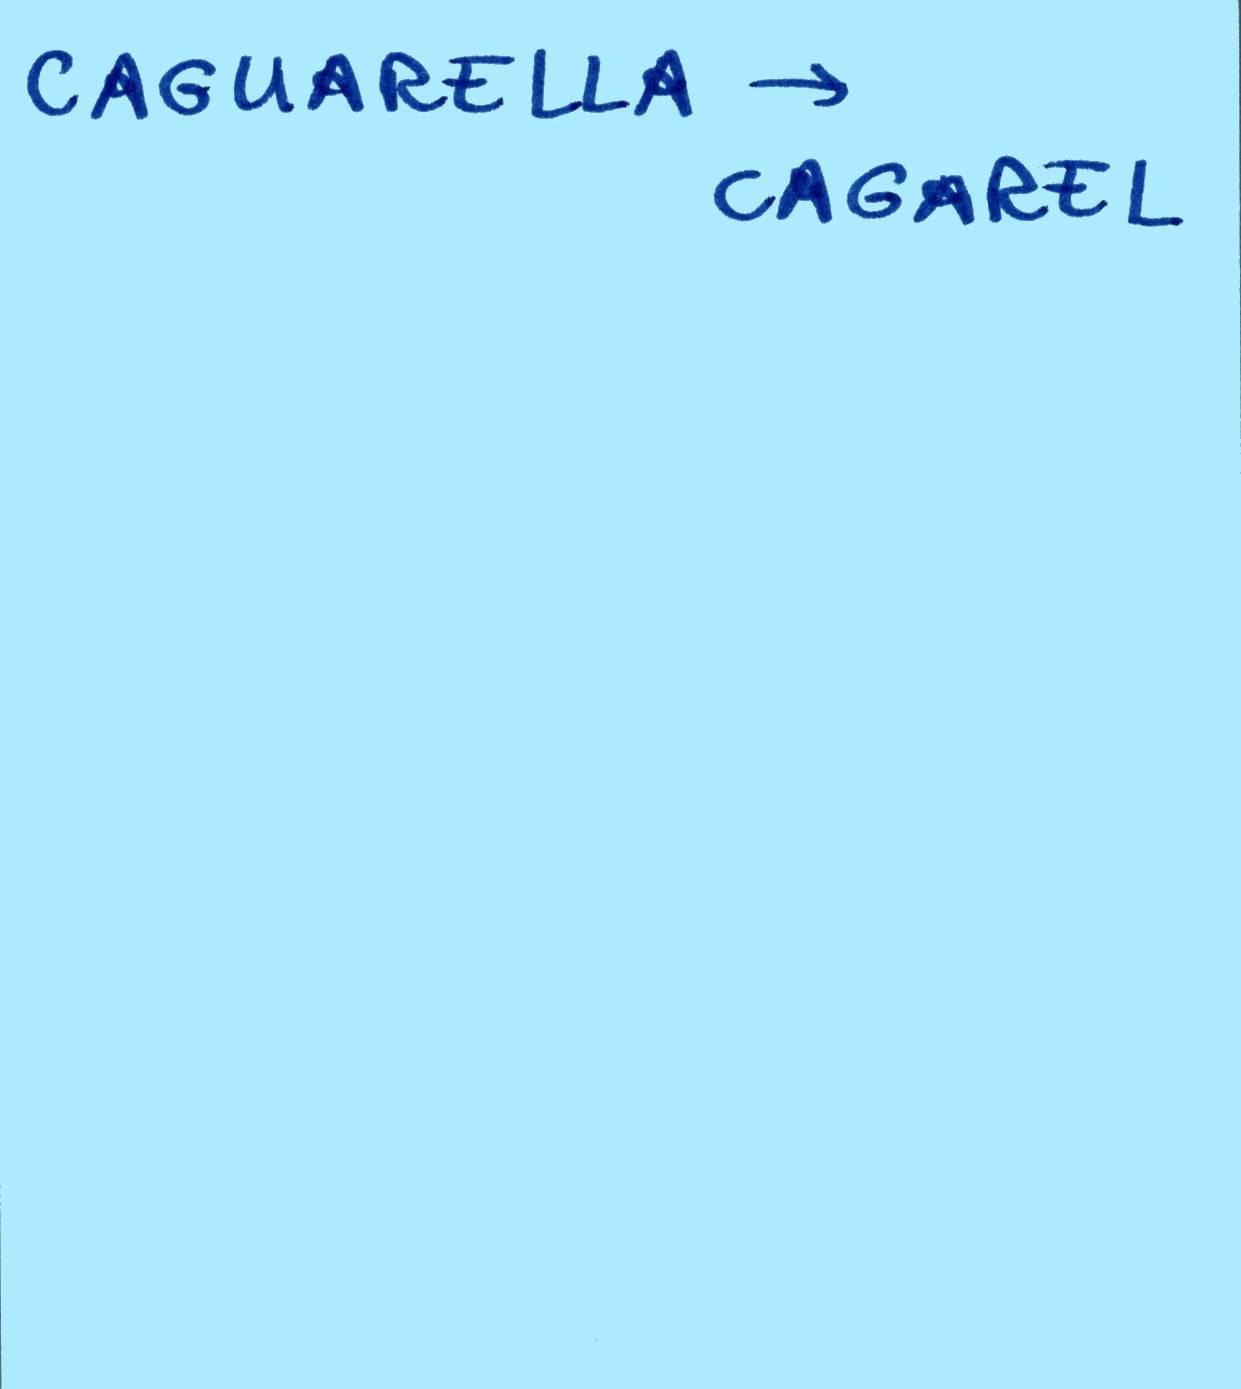 CAGUARELLA →
CAGAREL